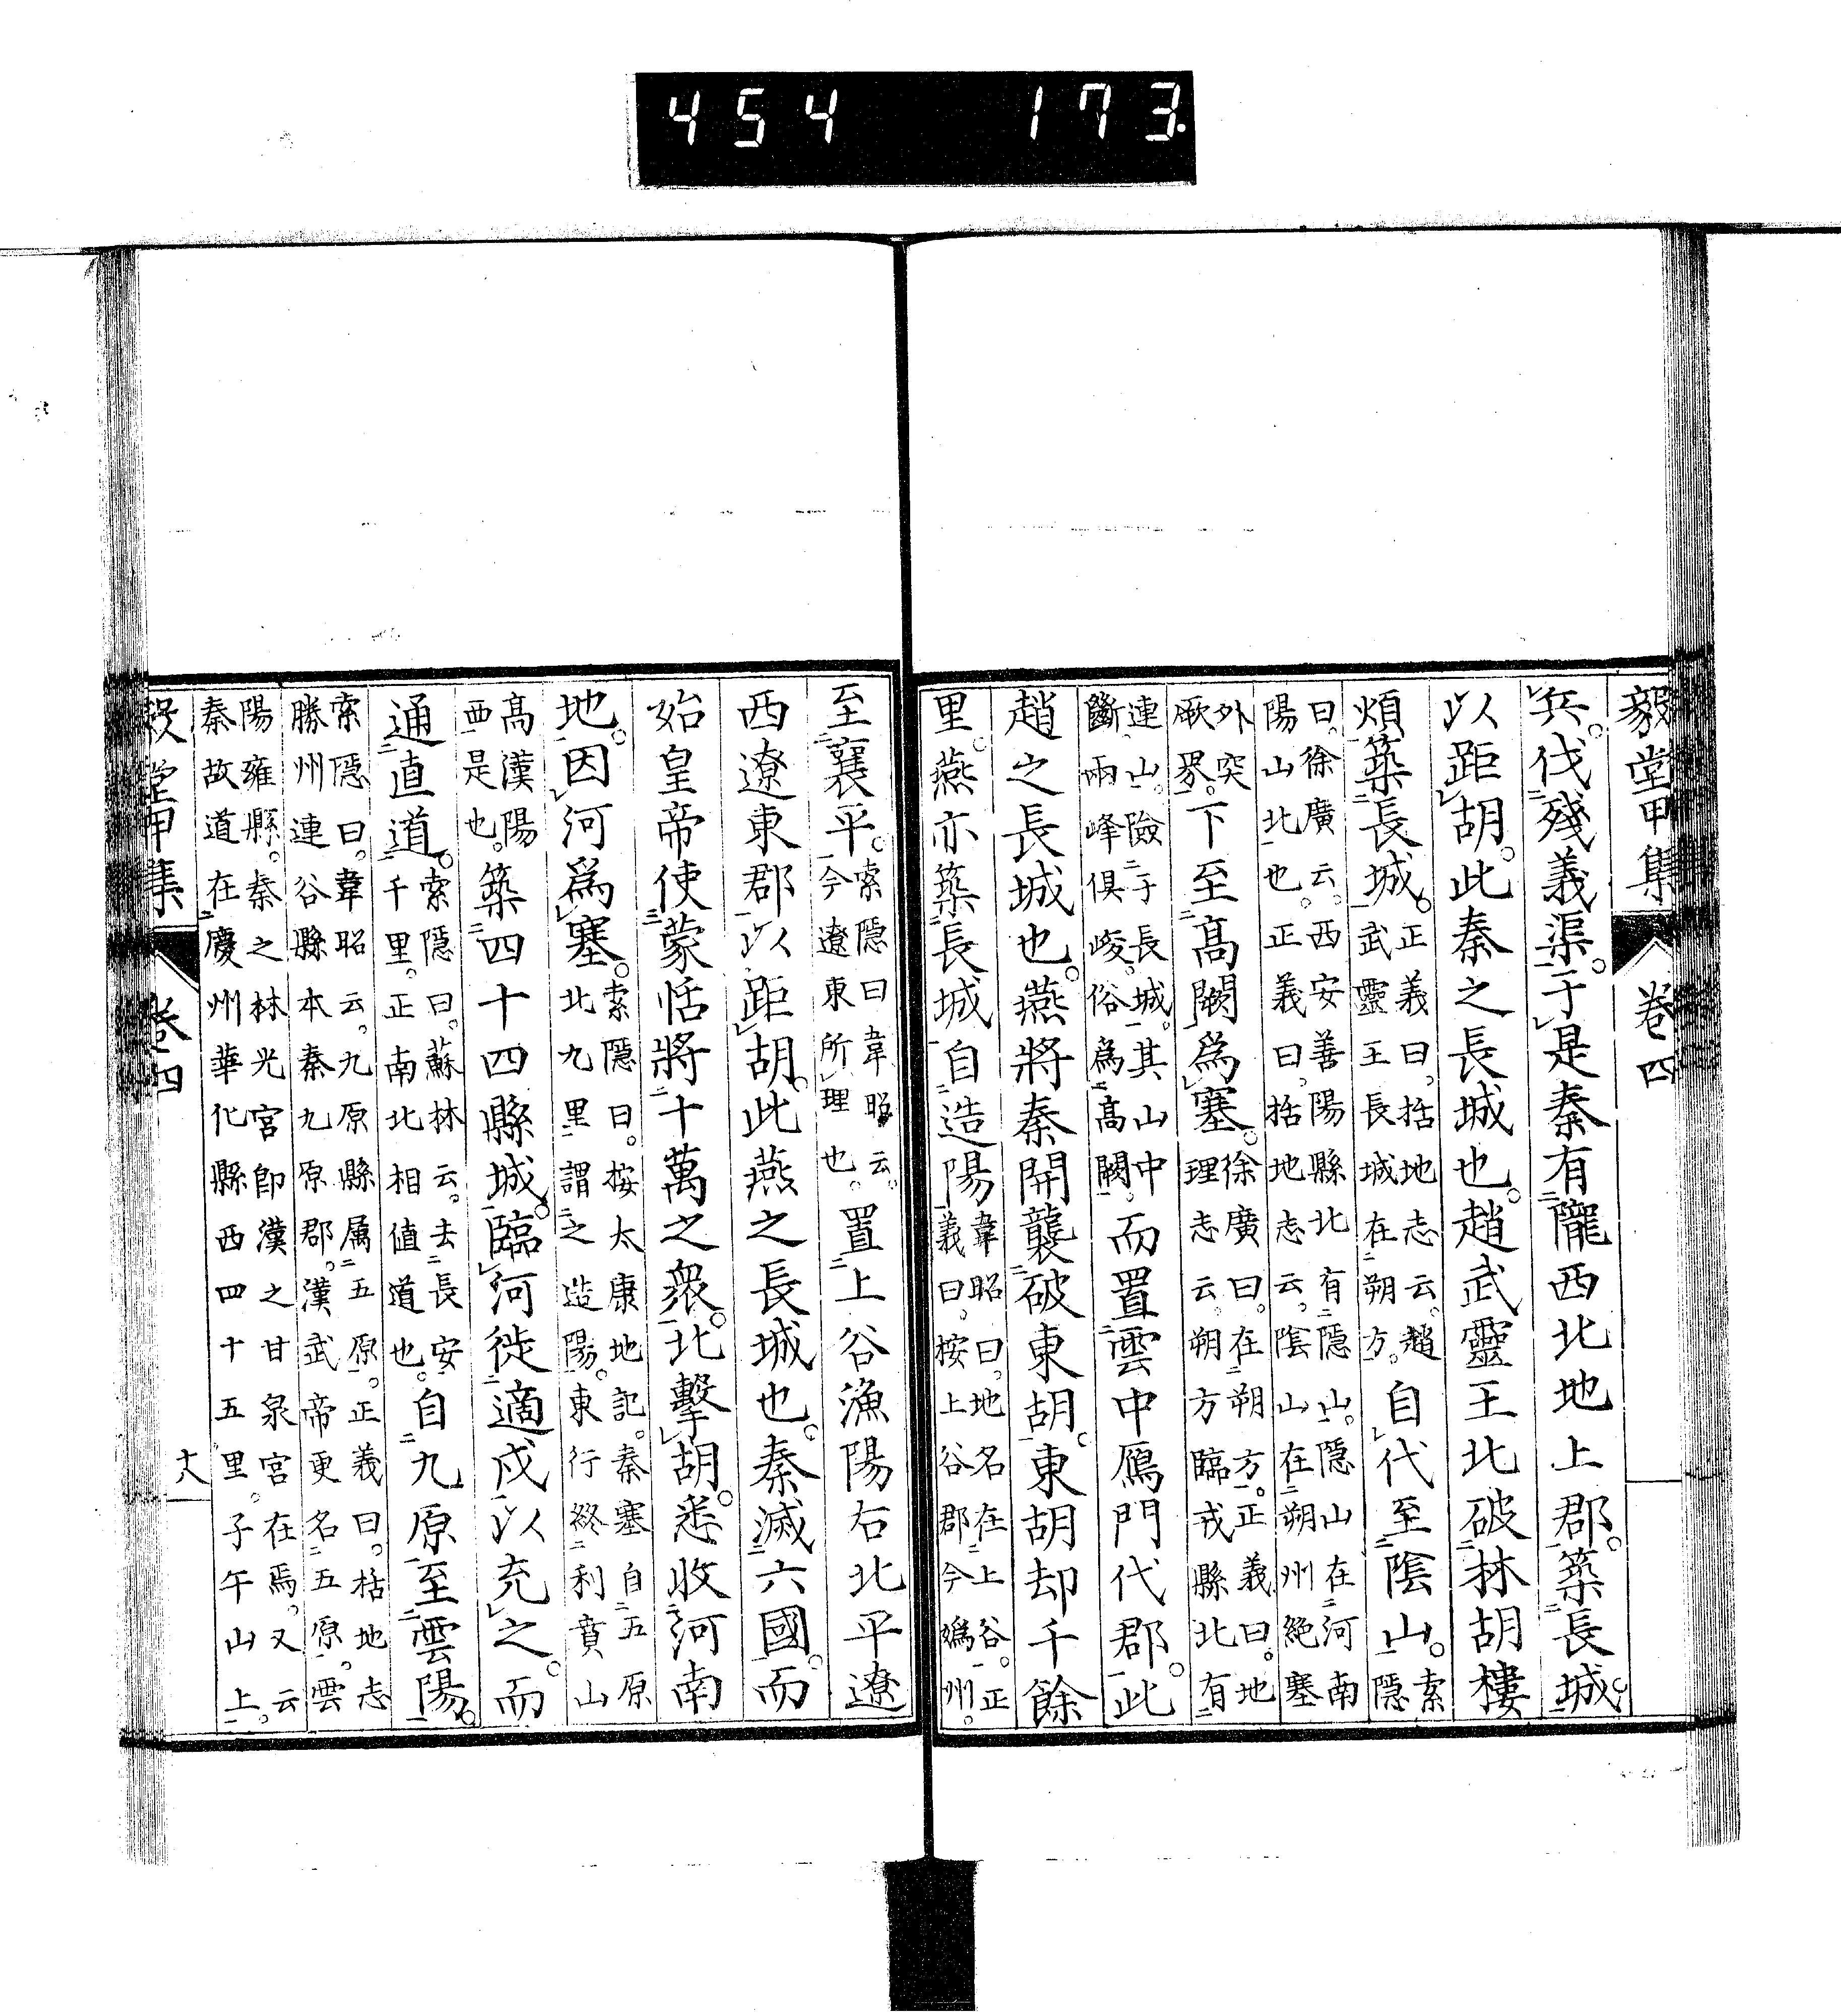 454 173
毅堂甲集 卷四
兵。伐殘義渠。于是秦有隴西北地上郡。築長城。
以距胡。此秦之長城也。趙武靈王北破林胡樓
煩築長城。正義曰。括地志云。趙武靈王長城在朔方。自代至陰山。索隱
曰。徐廣云。西安善陽縣北有隱山。隱山在河南陽山北也。正義曰。括地志云。陰山在朔州絕塞
外突厥界。下至高闕爲塞。徐廣曰。在朔方。正義曰。地理志云。朔方臨戎縣北有
連山。險于長城。其山中斷兩峰俱峻。俗爲高闕。而置雲中鴈門代郡。此
趙之長城也。燕將秦開襲破東胡。東胡却千餘
里。燕亦築長城自造陽韋昭曰。地名在上谷。正義曰。按上谷郡今嬀州。
至襄平。索隱曰韋昭云。今遼東所理也。置上谷漁陽右北平遼
西遼東郡以距胡。此燕之長城也。秦滅六國。而
始皇帝使蒙恬將十萬之衆。北擊胡。悉收河南
地。因河爲塞。索隱曰。按太康地記。秦塞自五原北九里謂之造陽。東行終利賁山
高漢陽西是也。築四十四縣城。臨河徙適戍以充之。而
通直道。索隱曰。蘇林云。去長安千里。正南北相値道也。自九原至雲陽。
索隱曰。韋昭云。九原縣属五原。正義曰。括地志勝州連谷縣本秦九原郡。漢武帝更名五原。雲
陽雍縣。秦之林光宮卽漢之甘泉宮在焉。又云秦故道在慶州華化縣西四十五里。子午山上。
毅堂甲集 卷四 十八